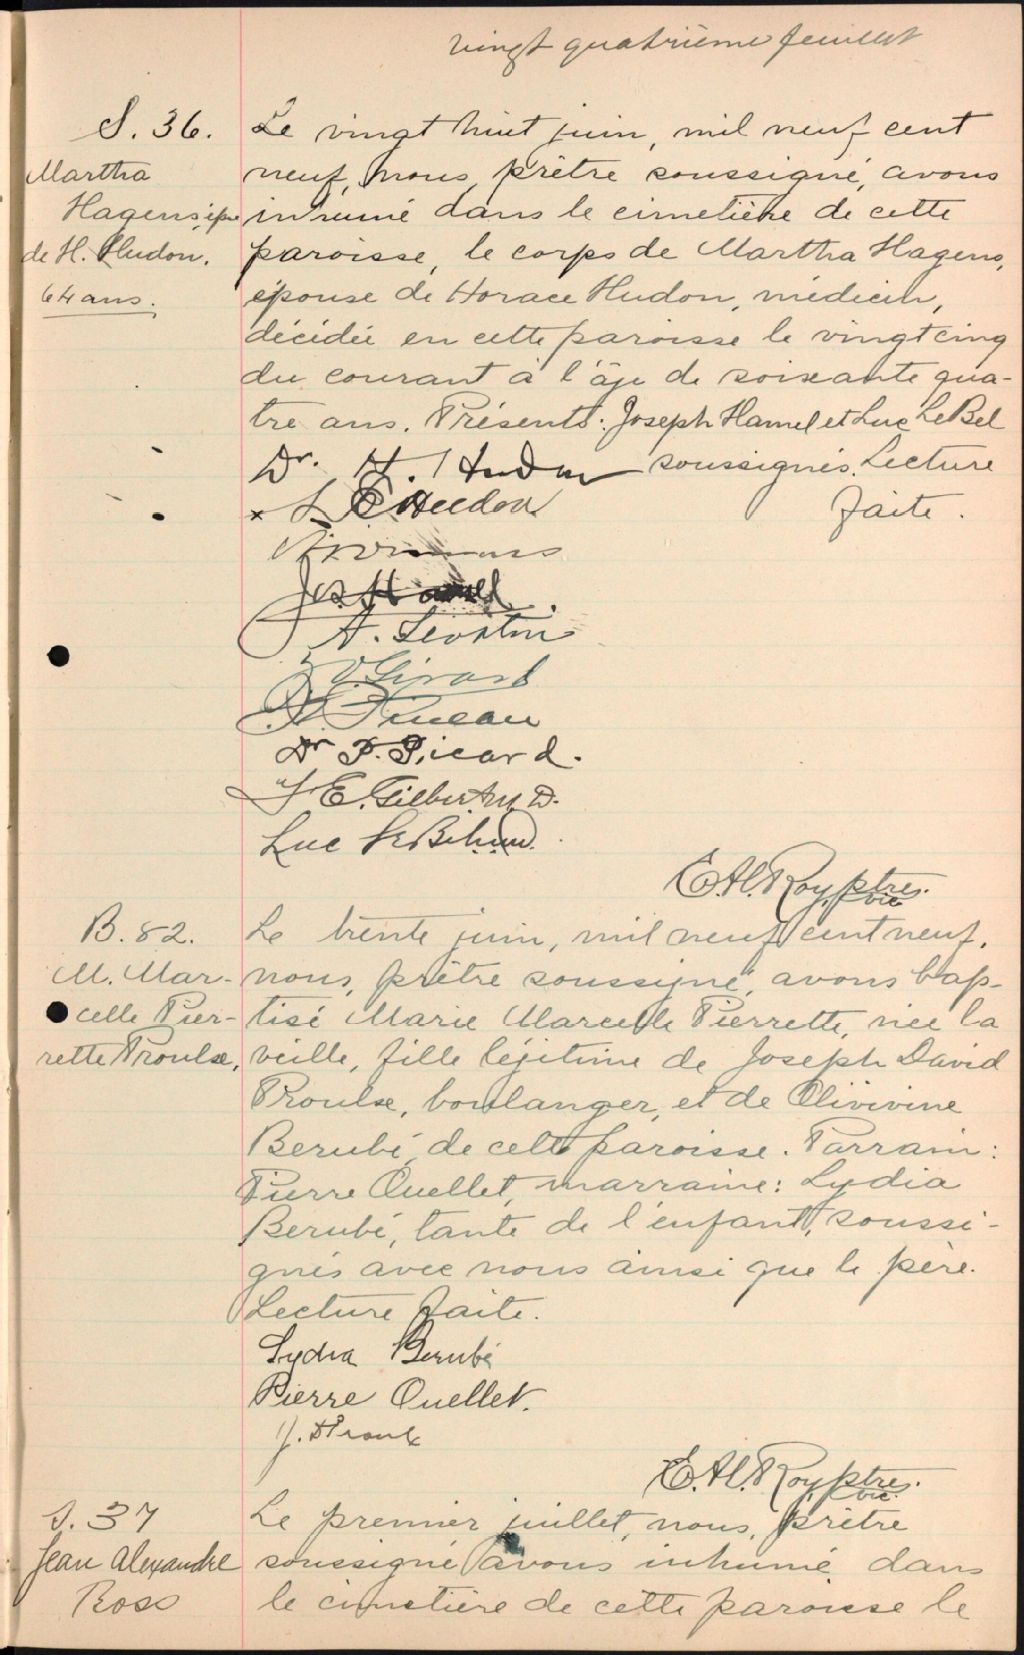 vingt quatrième feuillet
S. 36.
Martha
Hagens, épse
de H. Hudon.
64 ans.
Le vingt huit juin, mil neuf cent
neuf, nous, prêtre soussigné, avons
inhumé dans le cimetière de cette
paroisse, le corps de Martha Hagens,
épouse de Horace Hudon, médecin,
décédée en cette paroisse le vingt cinq
du courant à l'âge de soixante qua-
tre ans. Présents: Joseph Hamel et Luc LeBel
soussignés. Lecture
faite.
Dr. H. Hudon
x Hudon
Jos. Hamel
A.
Girard
Pineau
Dr P. Picard.
J E. Gilbert M.D.
Luc
E. Al. Roy, ptre. vic.
B. 82.
M. Mar-
celle Pier-
rette Proulx.
Le trente juin, mil neuf cent neuf,
nous, prêtre soussigné, avons bap-
tisé Marie Marcelle Pierrette, née la
veille, fille légitime de Joseph David
Proulx, boulanger, et de Olivivine
Berubé de cette paroisse. Parrain:
Pierre Ouellet, marraine: Lydia
Berubé, tante de l'enfant, soussi-
gnés avec nous ainsi que le père.
Lecture faite.
Lydia Berubé
Pierre Ouellet.
J. D Proulx
E. Al. Roy, ptre. vic.
S. 37
Jean Alexandre
Ross
Le premier juillet, nous, prêtre
soussigné avons inhumé dans
le cimetière de cette paroisse le